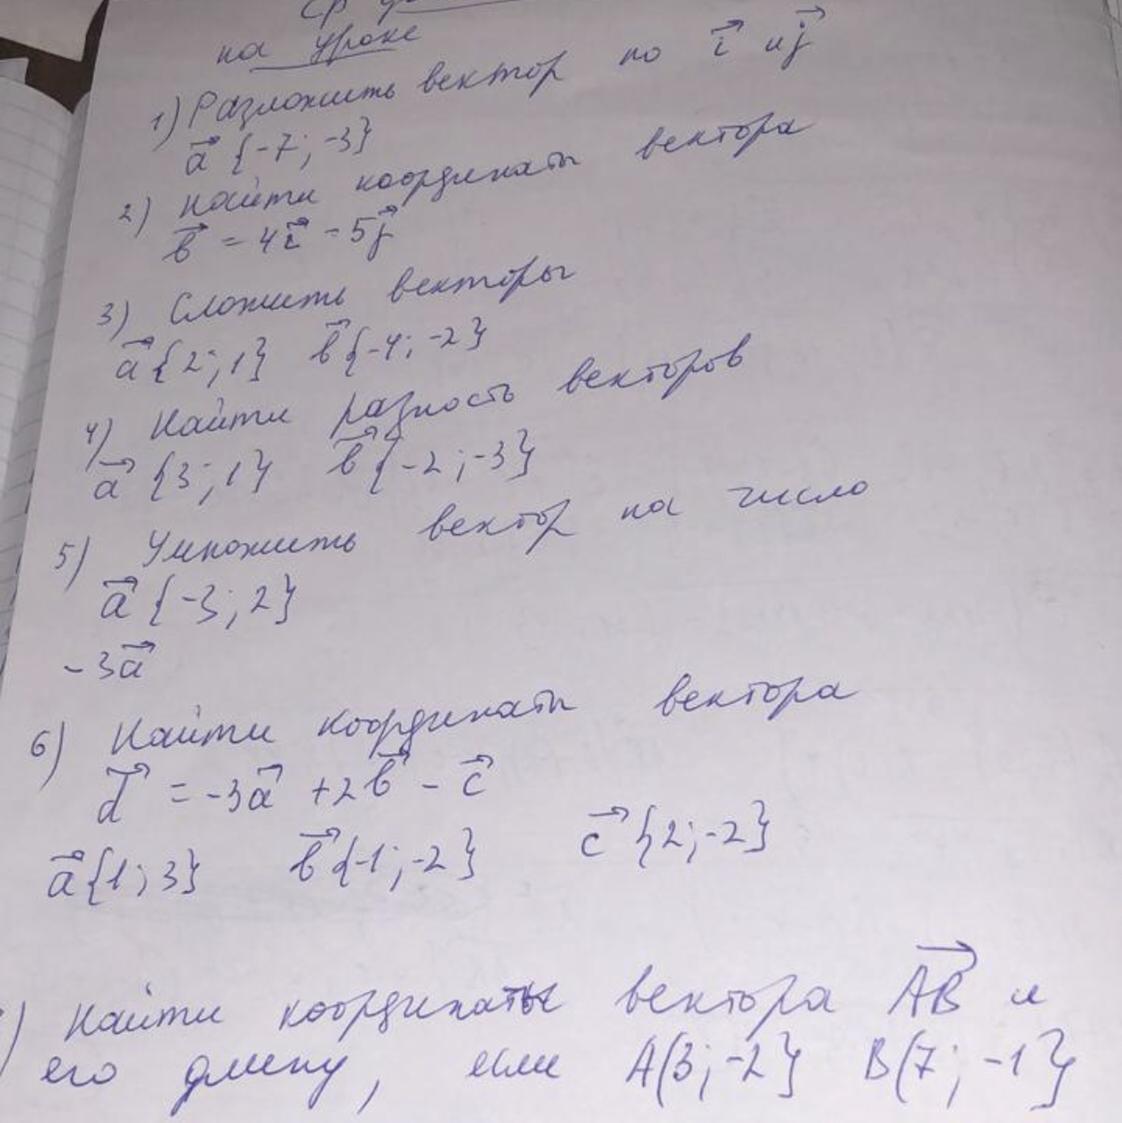 на уроке
1) Разложить вектор по i⃗ и j⃗
a⃗ {-7; -3}
2) Найти координаты вектора
b⃗ = 4i⃗ - 5j⃗
3) Сложить векторы
a⃗ {2; 1} b⃗ {-4; -2}
4) Найти разность векторов
a⃗ {3; 1} b⃗ {-2; -3}
5) Умножить вектор на число
a⃗ {-3; 2}
-3a⃗
6) Найти координаты вектора
d⃗ = -3a⃗ + 2b⃗ - c⃗
a⃗ {1; 3} b⃗ {-1; -2} c⃗ {2; -2}
) Найти координаты вектора AB⃗ и
его длину, если A(3; -2} B(7; -1}